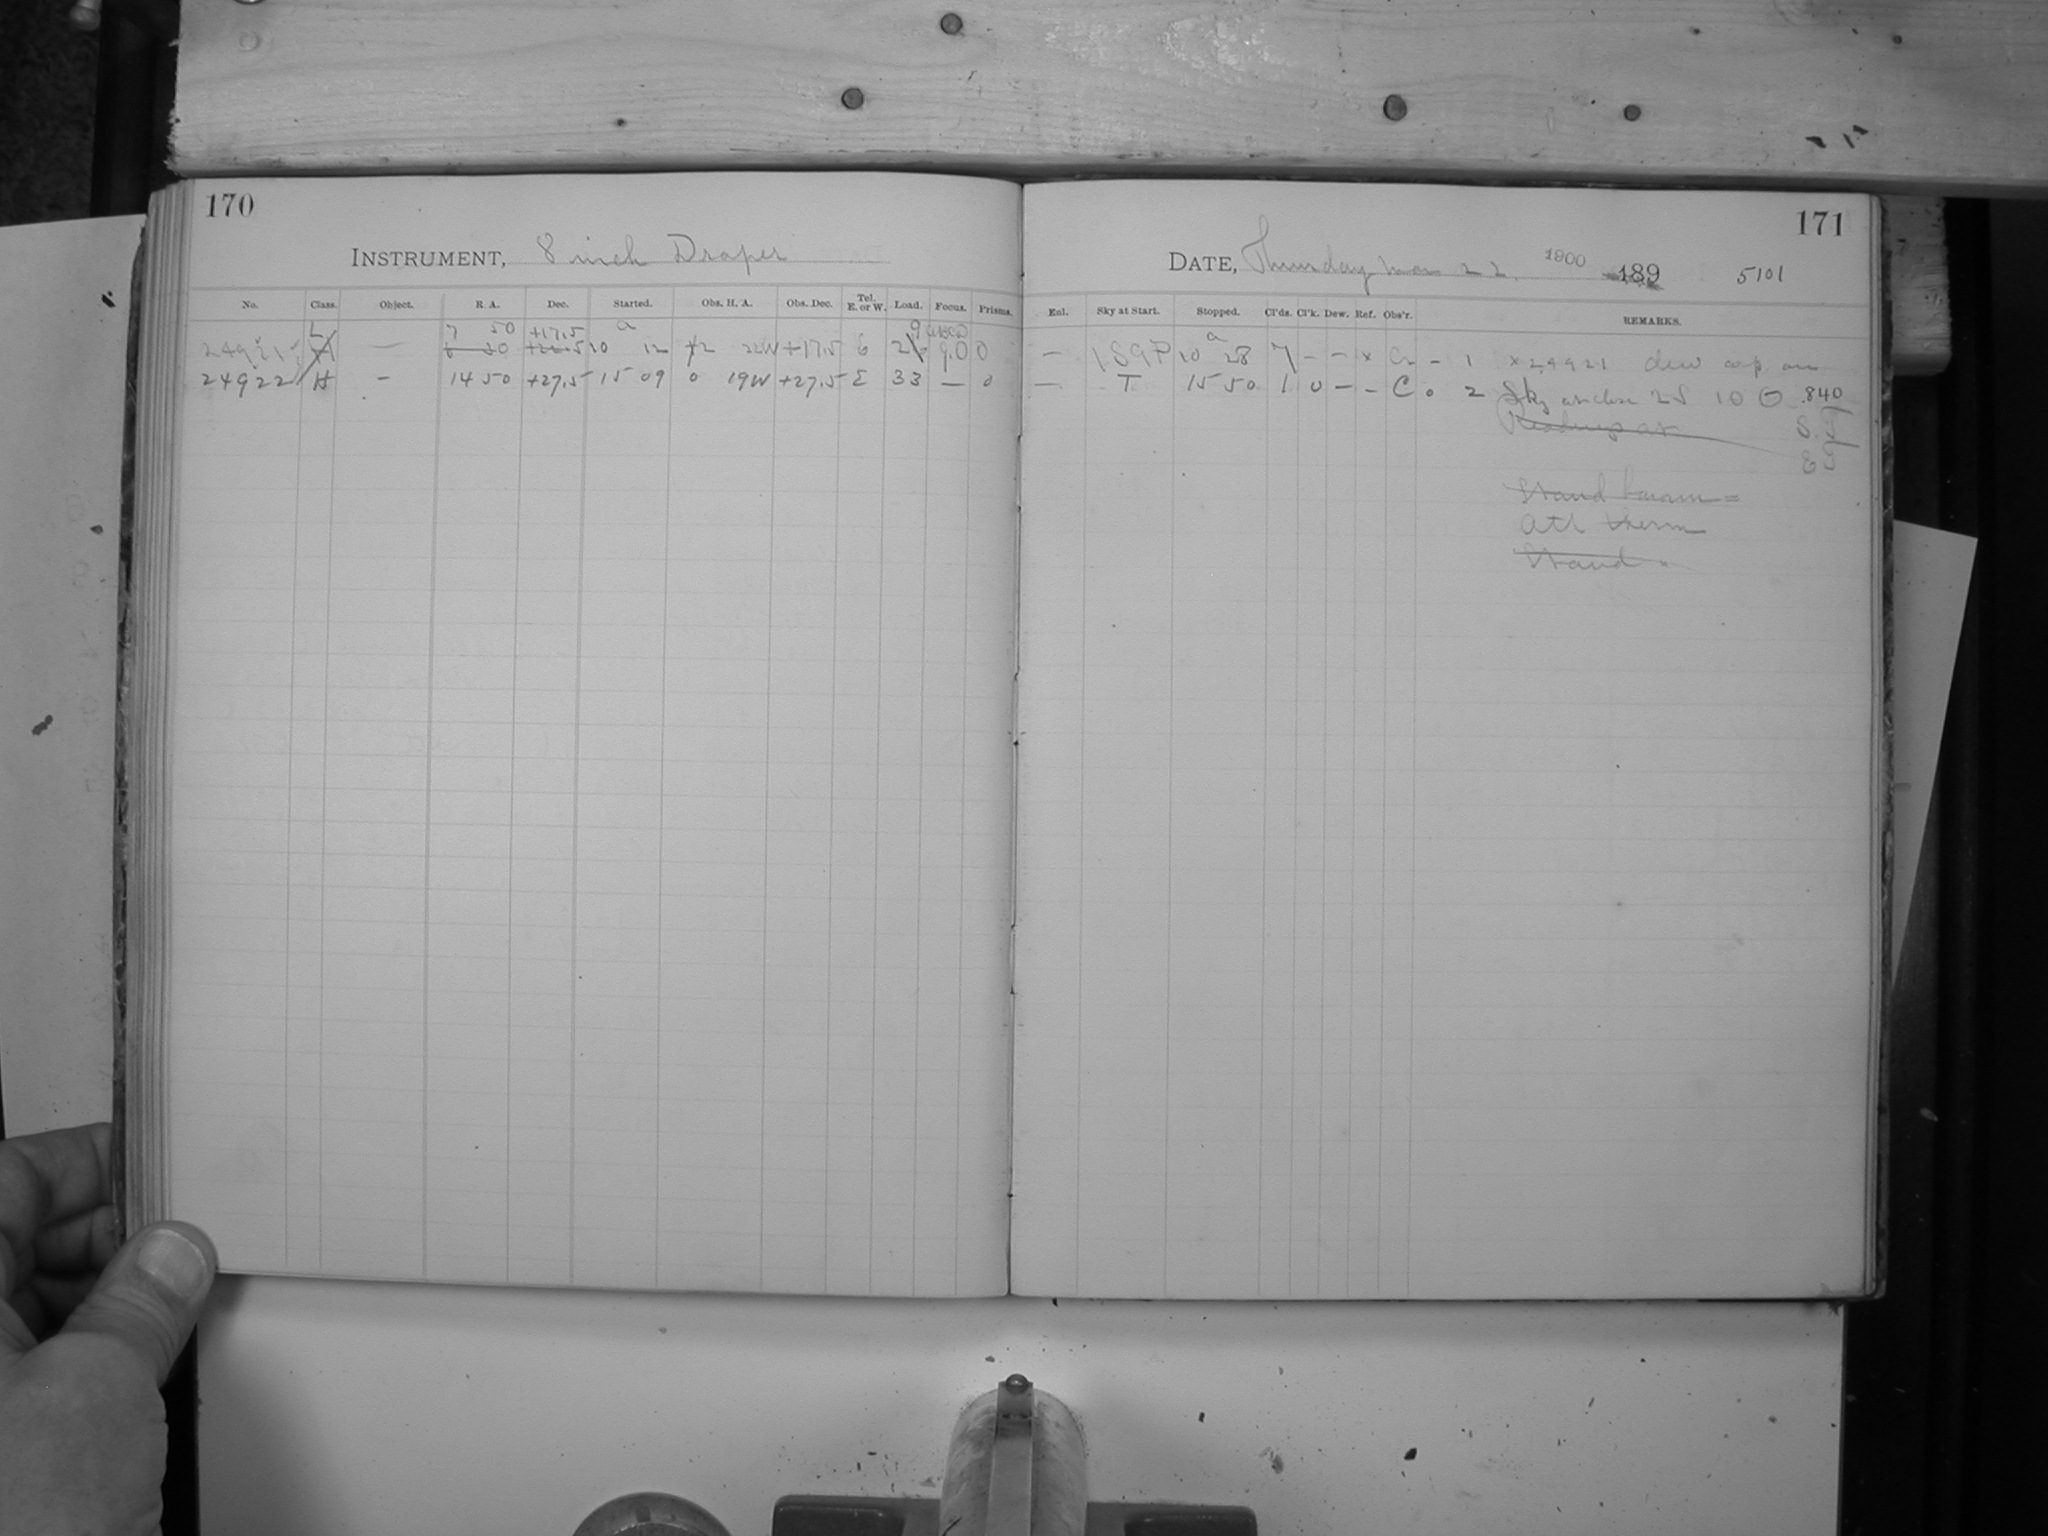 170
INSTRUMENT, 8 inch Draper
No. Class. Object. R. A. Dec. Started. Obs. H. A. Obs. Dec. Tel. E. or W. Load. Focus. Prisms.
L 7 50 +17.5 a 9
— 10 12 2 22W +17.5 9.0 0
24922 H — 14 50 +27.5 15 09 0 19W +27.5 E 33 — 0
171
DATE, Thursday Mar 22. 1900 189 5101
Enl. Sky at Start. Stopped. Cl'ds. Cl'k. Dew. Ref. Obs'r. REMARKS.
— 10 a 28 7 — — x — 1 x 24921 dew cap on
— T 15 50 1 0 — — C 0 2 Sky 10 .840
Readings at S. T
Stand barom =
Att therm
Stand